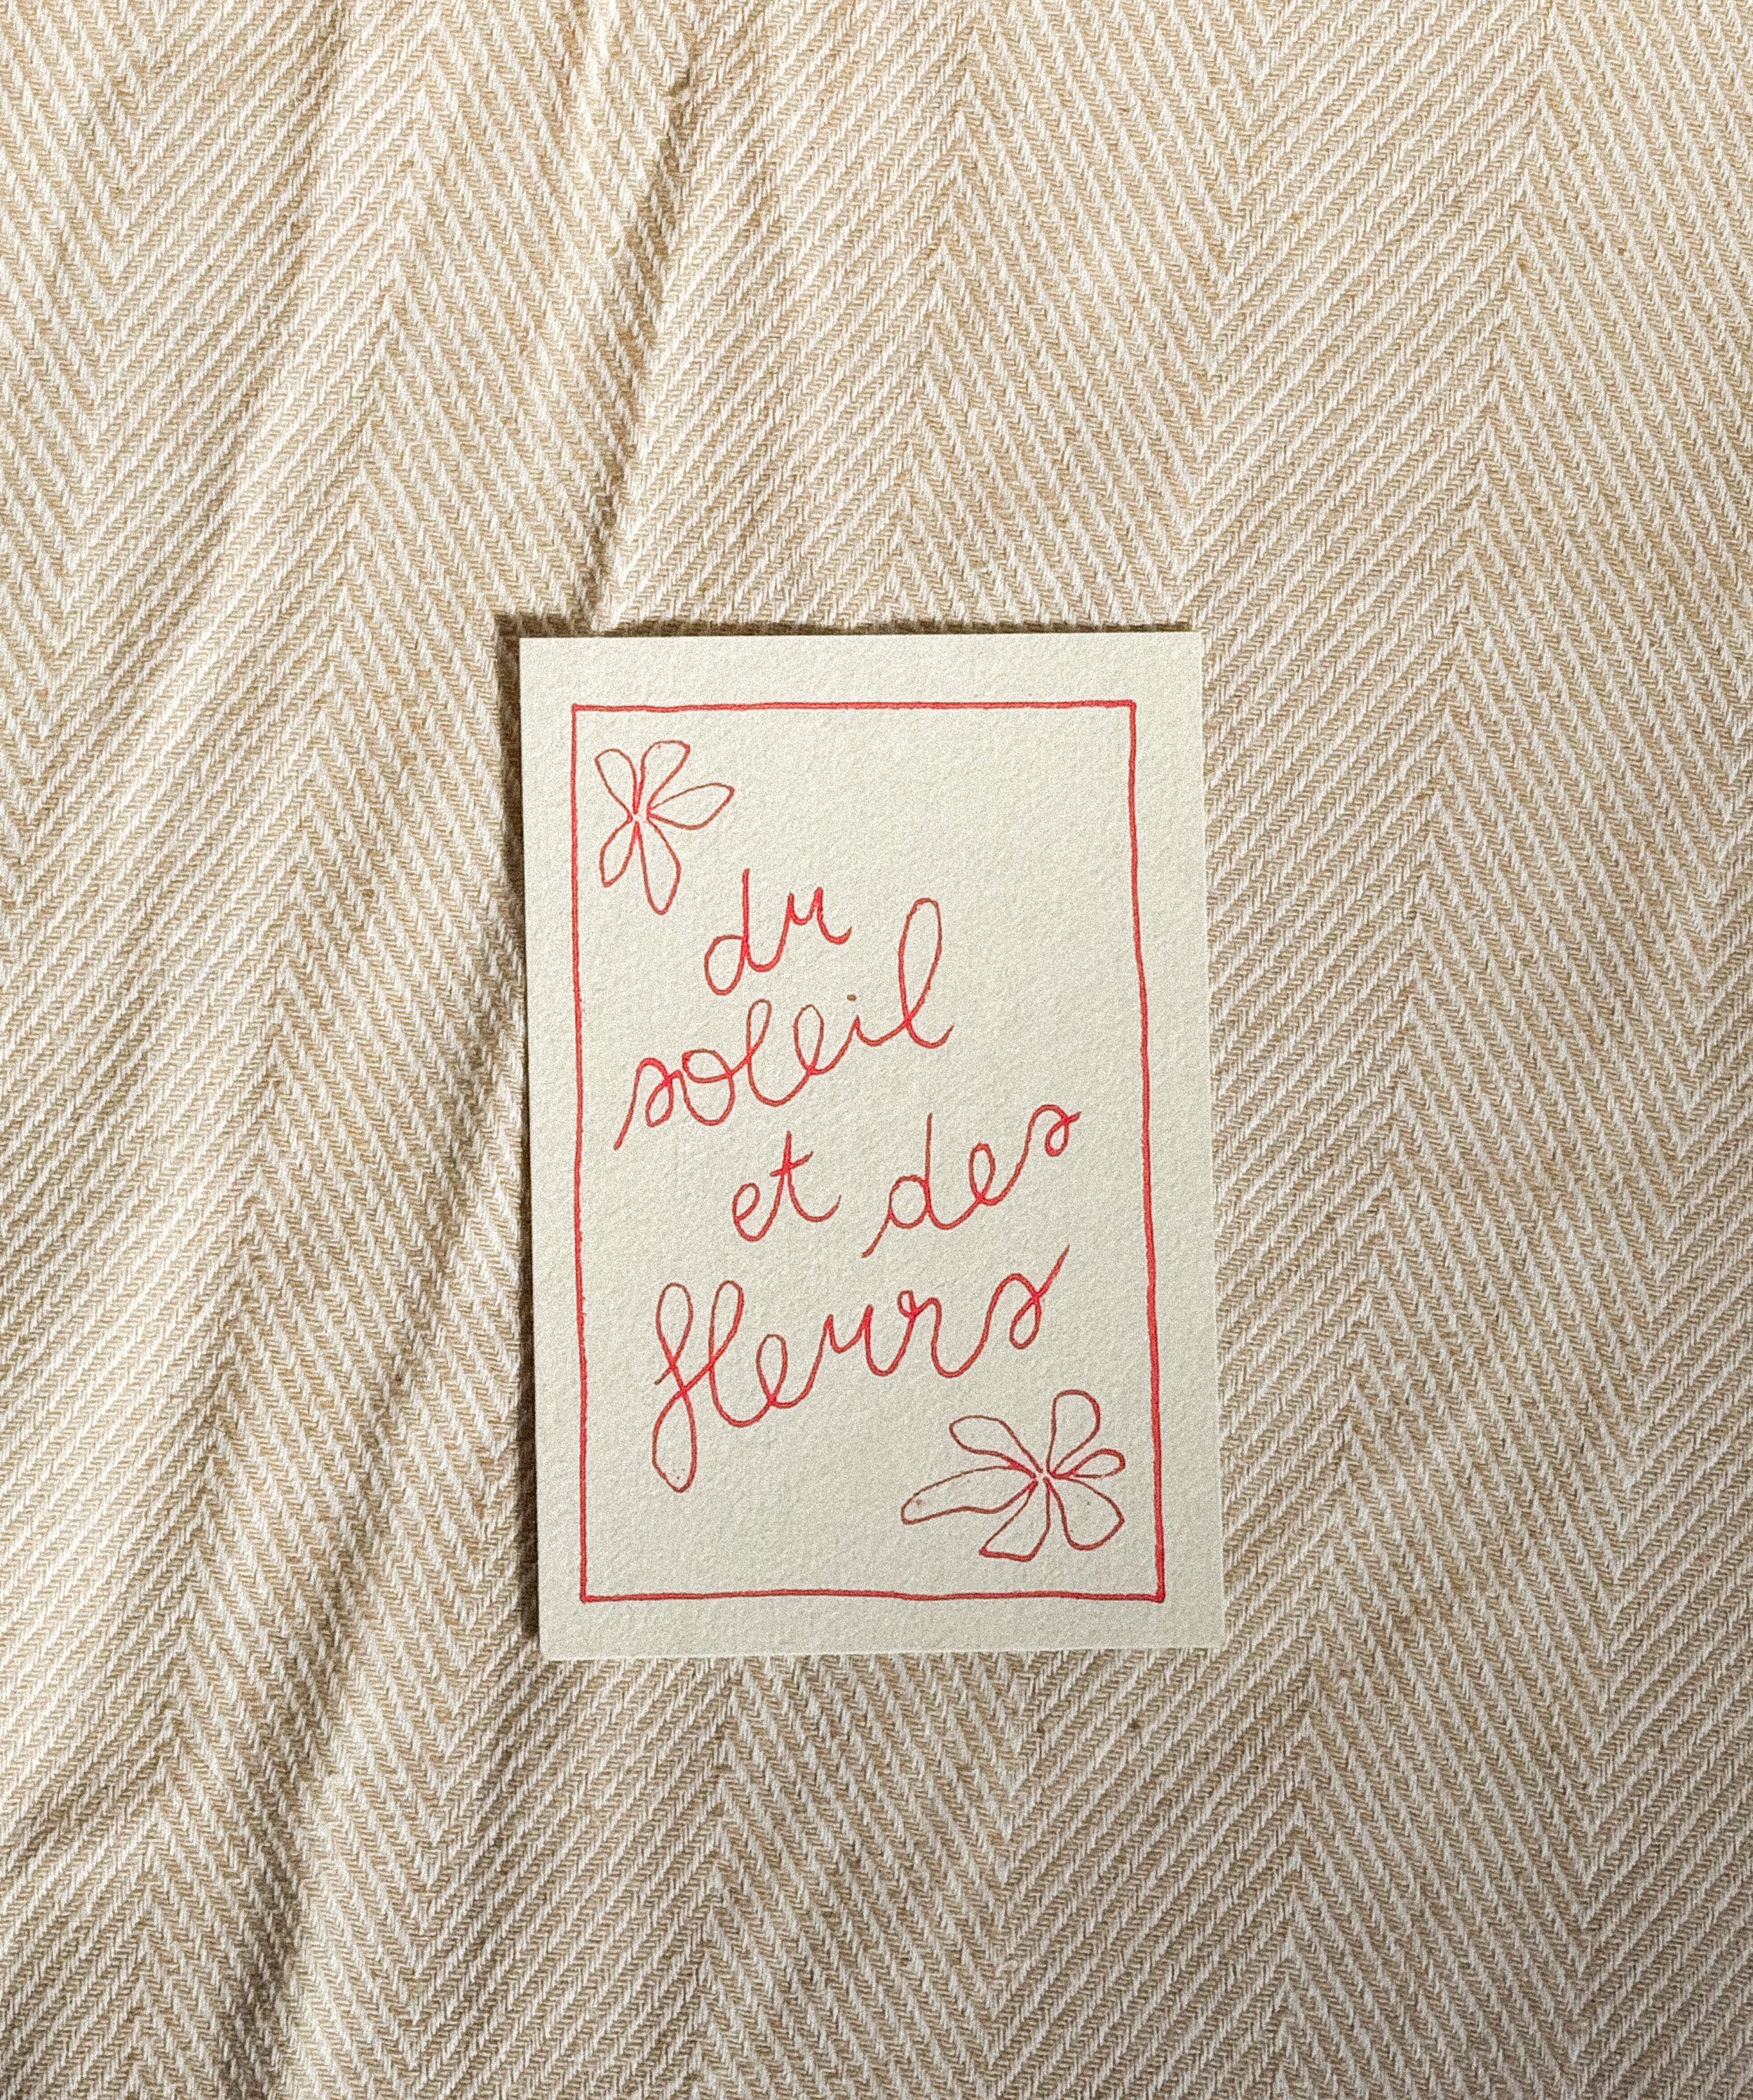 du
soleil
et des
fleurs